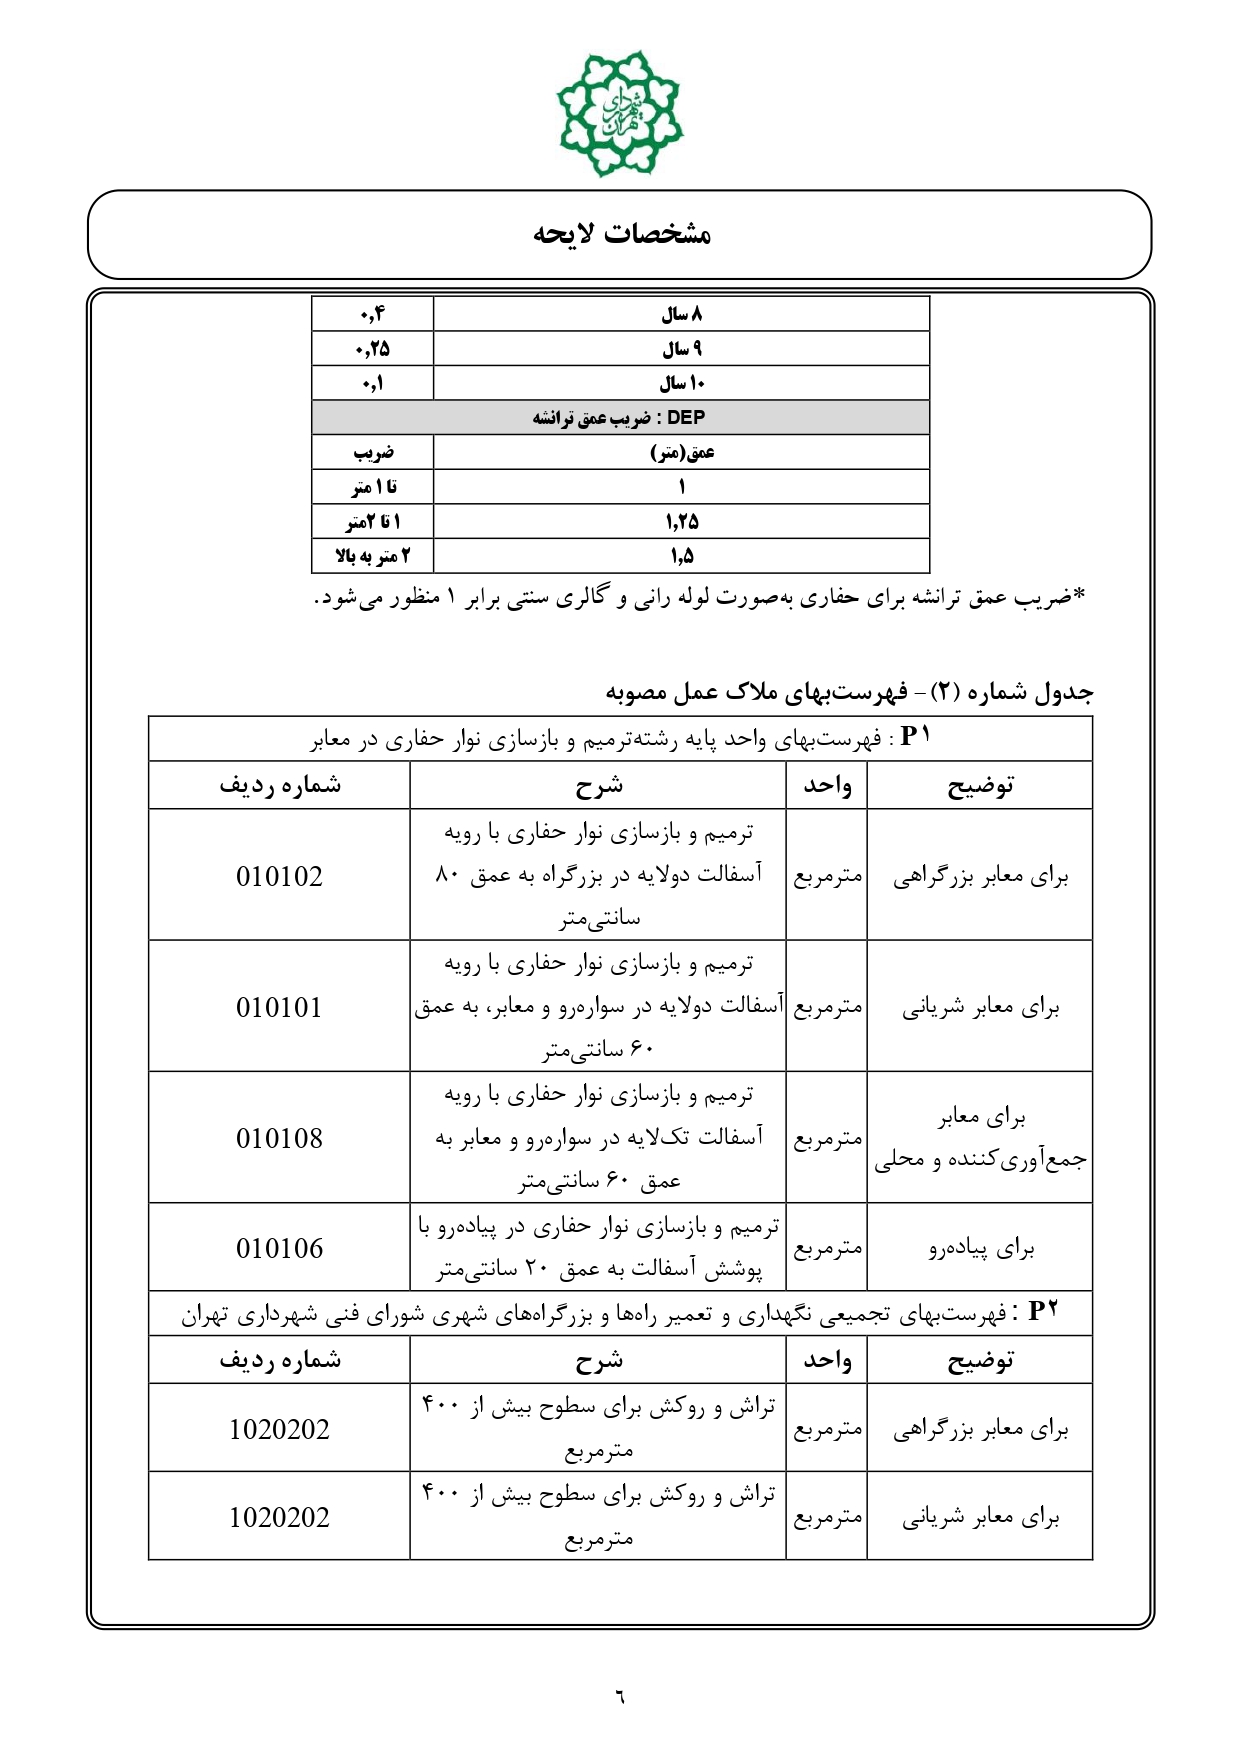 شهرداری تهران
مشخصات لایحه
۸ سال ۰٫۴
۹ سال ۰٫۲۵
۱۰ سال ۰٫۱
DEP : ضریب عمق ترانشه
عمق(متر) ضریب
۱ تا ۱ متر
۱٫۲۵ ۱ تا ۲متر
۱٫۵ ۲ متر به بالا
*ضریب عمق ترانشه برای حفاری به‌صورت لوله رانی و گالری سنتی برابر ۱ منظور می‌شود.
جدول شماره (۲) – فهرست‌بهای ملاک عمل مصوبه
P۱ : فهرست‌بهای واحد پایه رشته‌ترمیم و بازسازی نوار حفاری در معابر
توضیح واحد شرح شماره ردیف
برای معابر بزرگراهی مترمربع ترمیم و بازسازی نوار حفاری با رویه
آسفالت دولایه در بزرگراه به عمق ۸۰
سانتی‌متر 010102
برای معابر شریانی مترمربع ترمیم و بازسازی نوار حفاری با رویه
آسفالت دولایه در سواره‌رو و معابر، به عمق
۶۰ سانتی‌متر 010101
برای معابر
جمع‌آوری‌کننده و محلی مترمربع ترمیم و بازسازی نوار حفاری با رویه
آسفالت تک‌لایه در سواره‌رو و معابر به
عمق ۶۰ سانتی‌متر 010108
برای پیاده‌رو مترمربع ترمیم و بازسازی نوار حفاری در پیاده‌رو با
پوشش آسفالت به عمق ۲۰ سانتی‌متر 010106
P۲ : فهرست‌بهای تجمیعی نگهداری و تعمیر راه‌ها و بزرگراه‌های شهری شورای فنی شهرداری تهران
توضیح واحد شرح شماره ردیف
برای معابر بزرگراهی مترمربع تراش و روکش برای سطوح بیش از ۴۰۰
مترمربع 1020202
برای معابر شریانی مترمربع تراش و روکش برای سطوح بیش از ۴۰۰
مترمربع 1020202
٦